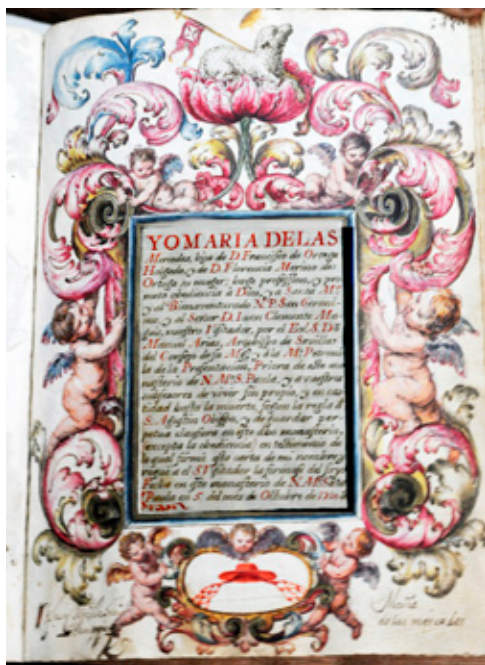 YO MARIA DE LAS
Mercedes, hija de D. Francisco de Ortega
Holgado, y de D. Florencia Merino de
Ortega su muger; hago profession, y pro-
meto obediencia a Dios, y a Santa Mª.
y al Bienaventurado N. P. San Geroni-
mo, y al Señor D. Juan Clemente
nuestro Visitador, por el
Manuel Arias, Arçobispo de Sevilla
del Consejo de su Mag. y à la Me. Petroni-
la de la Presentacion, Priora de este mo-
nasterio de N. Me. S. Paula, y a vuestras
subçesoras de vivir sin propio, y en cas-
tidad hasta la muerte, segun la regla de
S. Agustin Obispo, y de guardar per-
petua clausura en este dicho monasterio,
excepta la obediencia; en testimonio de
lo qual firmé esta carta de mi nombre,
rogué a el S. Visitador la firmase del suyo
Fecha en este monasterio de N. Me. Sta.
Paula en 5 del mes de Octubre de
Maria
de las mercedes